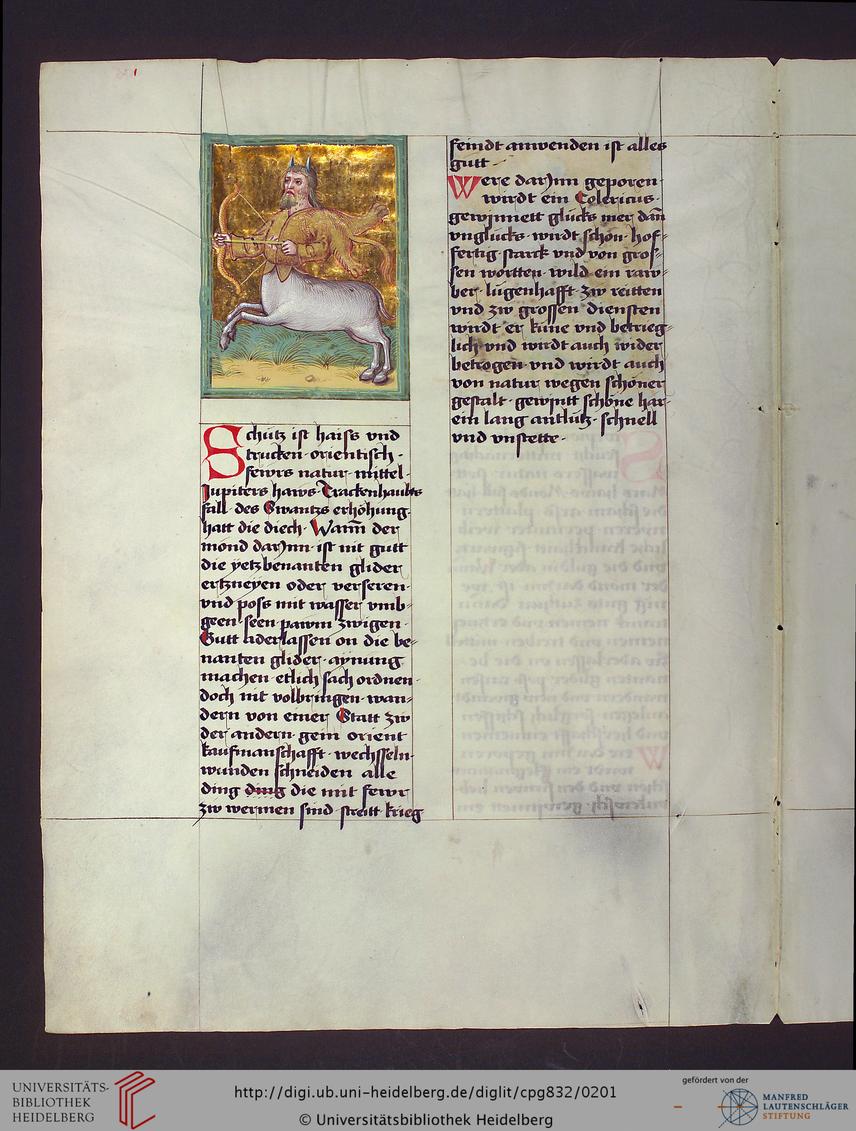 Schütz ist haiss vnd
trucken · orientisch ·
fewrs natur · mittel ·
Jupiters haws · Trackenhaubts
fall · des Swantzs erhöhung ·
hatt die diech · Wann̄ der
mond darjnn · ist nit gutt
die yetzbenanten glider
ertzneyen oder verseren ·
vnd poss mit wasser vmb-
geen · seen · pawm zwigen ·
Gutt aderlassen on die be-
nanten glider · aynung
machen · etlich sach ordnen ·
doch nit volbringen · wan-
dern von einer Statt zw
der andern · gem orient
kaufmanschafft · wechsseln ·
wunden schneiden alle
ding ding die mit fewr
zw wermen sind · streitt krieg
feindt anwenden ist alles
gutt ·
Were darjnn geporen ·
wirdt ein Colericus ·
gewynnett glücks mer dan̄
vnglücks · wirdt schön · hof-
fertig · starck vnd von gros-
sen wortten · wild · ein raw-
ber · lugenhafft · zw reitten
vnd zw grossen diensten
wirdt er küne vnd betrieg-
lich · vnd wirdt auch wider
betrogen · vnd wirdt auch
von natur wegen schöner
gestalt · gewynt schöne har ·
ein lang antlütz · schnell
vnd vnstette ·
UNIVERSITÄTS-
BIBLIOTHEK
HEIDELBERG
http://digi.ub.uni-heidelberg.de/diglit/cpg832/0201
© Universitätsbibliothek Heidelberg
gefördert von der
MANFRED
LAUTENSCHLÄGER
STIFTUNG